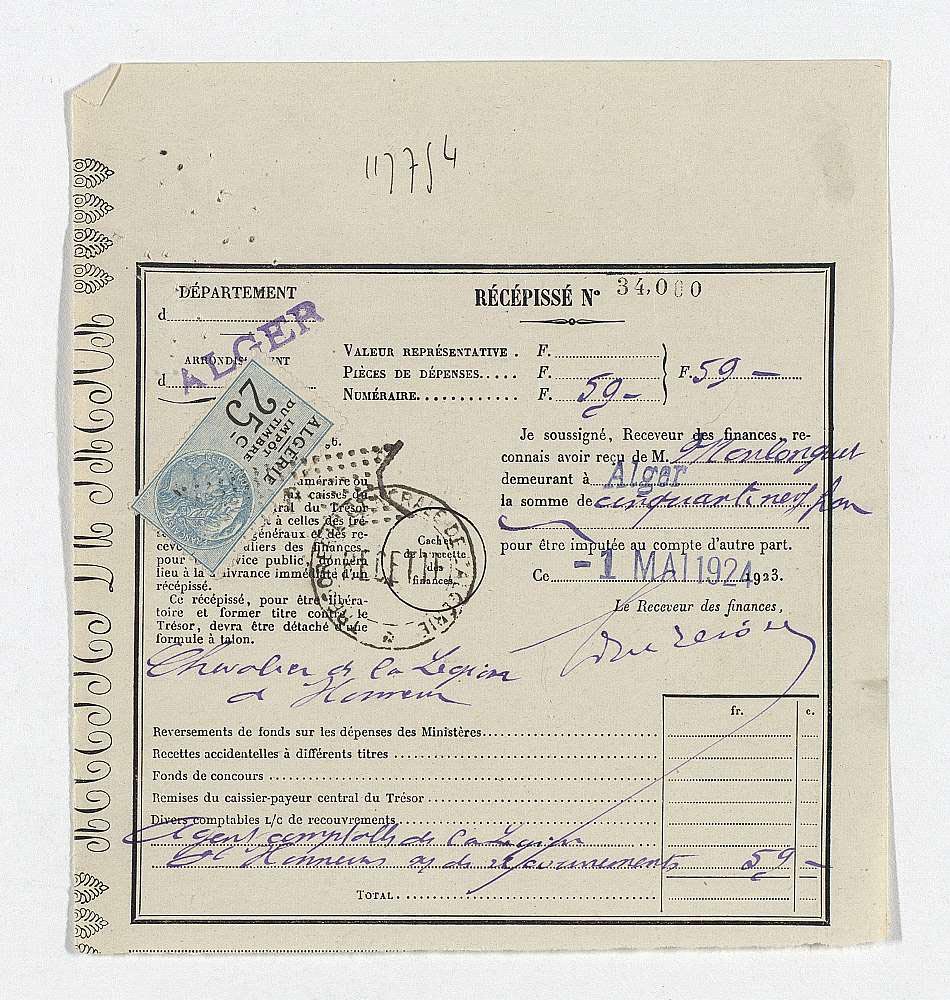 117754
DÉPARTEMENT
d
ALGER
ARRONDISSEMENT
d
RÉCÉPISSÉ N° 34,000
VALEUR REPRÉSENTATIVE . F.
PIÈCES DE DÉPENSES..... F.
NUMÉRAIRE............ F. 59 -
F. 59 -
25 Cs
ALGÉRIE
IMPÔT
DU TIMBRE
Je soussigné, Receveur des finances, re-
connais avoir reçu de M.
demeurant à Alger
la somme de cinquante neuf fran
pour être imputée au compte d'autre part.
Ce -1 MAI 1924 1923.
Le Receveur des finances,
6.
numéraire ou
aux caisses du
central du Trésor
à celles des tré-
généraux et des re-
particuliers des finances,
pour service public, donnera
lieu à la délivrance immédiate d'un
récépissé.
Ce récépissé, pour être libéra-
toire et former titre contre le
Trésor, devra être détaché d'une
formule à talon.
Cachet
de la recette
des
finances.
Chevalier de la Légion
d Honneur
fr. c.
Reversements de fonds sur les dépenses des Ministères
Recettes accidentelles à différents titres
Fonds de concours
Remises du caissier-payeur central du Trésor
Divers comptables L/C de recouvrements
Agent comptable de la Légion
d'Honneur 59 -
TOTAL